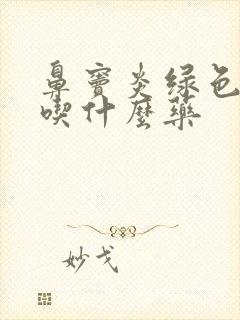 鼻窦炎绿色
喫什麼藥
妙戈